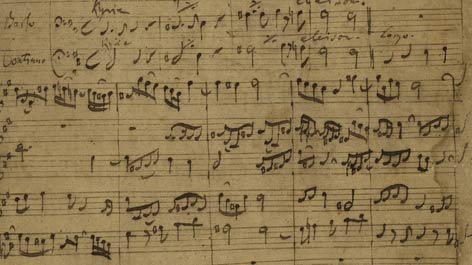 Kyrie eleison.
Basso
Kyrie eleison. Largo.
Continuo